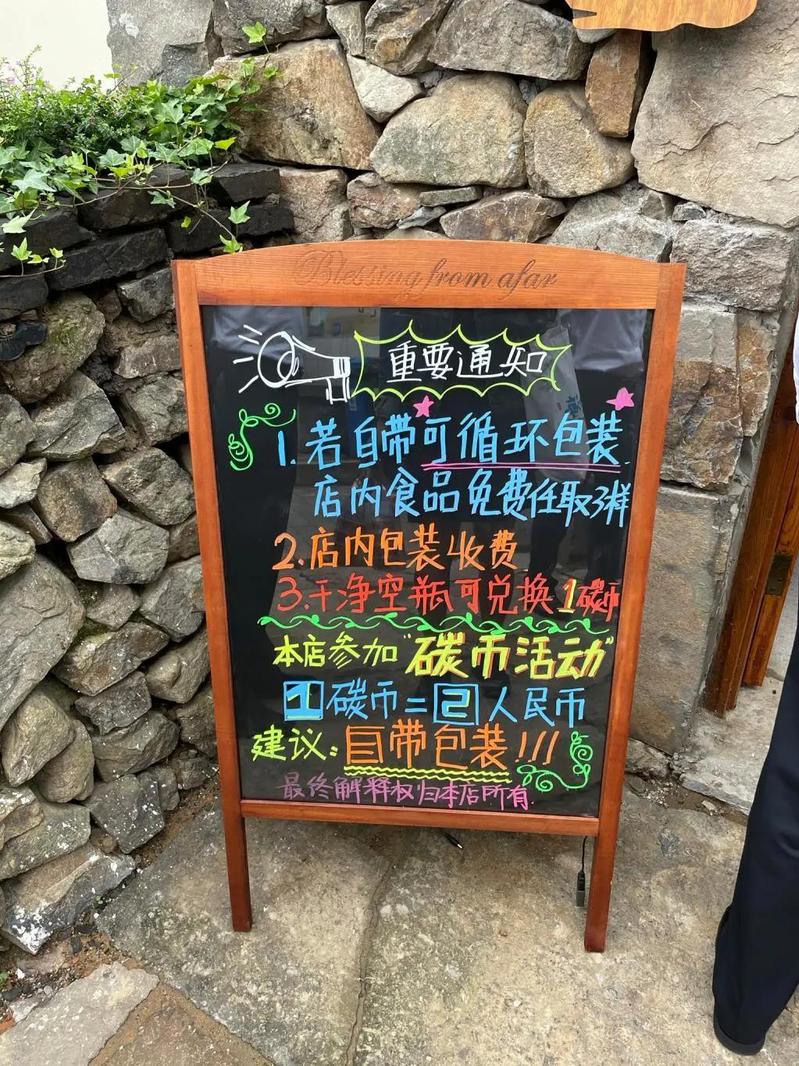 Blessing from afar
重要通知
1.若自带可循环包装
店内食品免费任取3样
2.店内包装收费
3.干净空瓶可兑换1碳币
本店参加"碳币活动"
1碳币=2人民币
建议:自带包装!!!
最终解释权归本店所有.